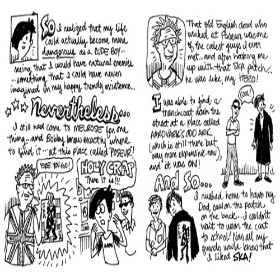 So I realized that my life
could actually become more
dangerous as a RUDE BOY...
seeing that I would have natural enemies
—something that I could have never
imagined in my happy trendy existence...
Nevertheless...
I still had come to MELROSE for one
thing—and Bobby knows exactly where
to find it... at this place called POSEUR!
RUDE BOYS GO!
HOLY CRAP
There it is!!!
That old English dude who
worked at Poseur was one of
the coolest guys I ever
met...and after hooking me
up with that SKA patch
he was like my HERO!
I was able to find a
trenchcoat down the
street at a place called
AARDVARK'S ODD ARK
(which is still there but
way more expensive now)
and it was ON!
COOL!
And So...
I rushed home to have my
Dad sew on the patch
on the back... I couldn't
wait to wear the coat
to school! Now all my
friends would know that
I liked SKA!